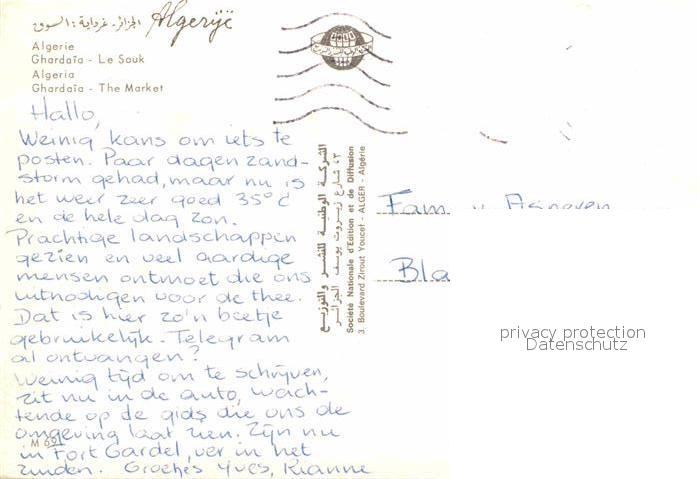 الجزائر - غرداية : السوق
Algerije
Algerie
Ghardaïa - Le Souk
Algeria
Ghardaïa - The Market
Hallo,
Weinig kans om iets te
posten. Paar dagen zand-
storm gehad, maar nu is
het weer zeer goed 35°C
en de hele dag zon.
Prachtige landschappen
gezien en veel aardige
mensen ontmoet die ons
uitnodigen voor de thee.
Dat is hier zo'n beetje
gebruikelijk. Telegram
al ontvangen?
Weinig tijd om te schrijven,
zit nu in de auto, wach-
tende op de gids die ons de
omgeving laat zien. Zijn nu
in Fort Gardel, ver in het
zuiden. Groetjes Yves, Rianne
M 69
الشركة الوطنية للنشر والتوزيع
٣، شارع زيروت يوسف الجزائر
Société Nationale d'Edition et de Diffusion
3, Boulevard Zirout Youcef - ALGER - Algérie
Fam. v.
Bla
privacy protection
Datenschutz